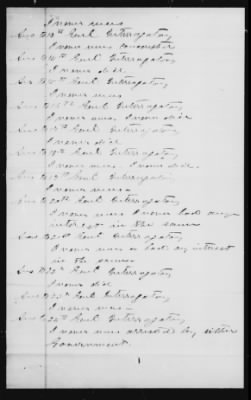 I never was
Ans 13th Gent Interrogatory
I never was connected
Ans 14th Gent Interrogatory
I never did.
Ans 15th Gent Interrogatory
I never was
Ans 16th Gent Interrogatory
I never was. I never did
Ans 17th Gent Interrogatory
I never did
Ans 18th Gent Interrogatory
I never was. I never did.
Ans 19th Gent Interrogatory
I never was
Ans 20th Gent Interrogatory
I never was I never had any
interest in the same
Ans 21st Gent Interrogatory
I never was or had any interest
in the same
Ans 22nd Gent Interrogatory
I never did
Ans 23rd Gent Interrogatory
I never was
Ans 24th Gent Interrogatory
I never was arrested by either
Government.